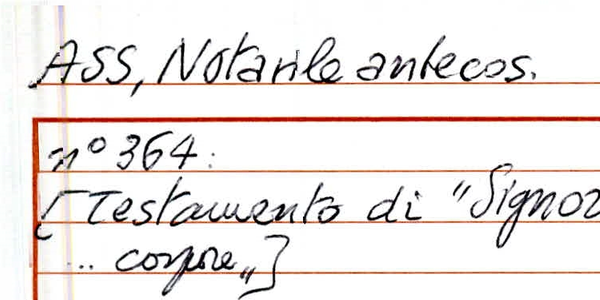 ASS, Notarile antecos.
n° 364:
[Testamento di "Signor
... corpore"]